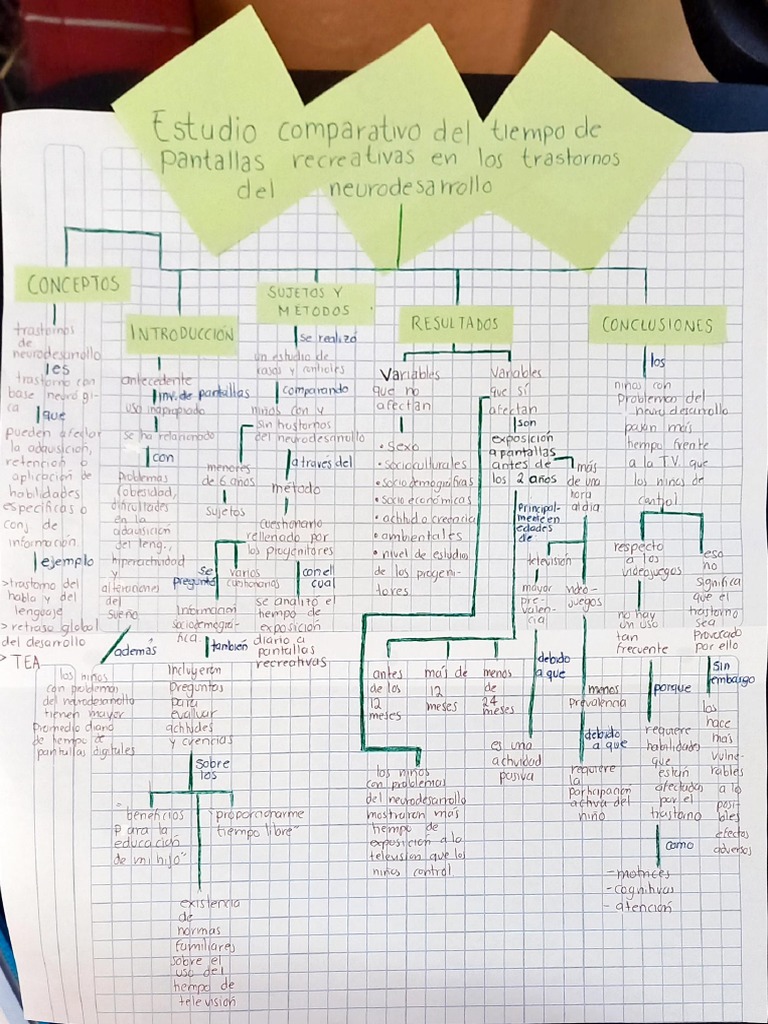 Estudio comparativo del tiempo de
pantallas recreativas en los trastornos
del neurodesarrollo
CONCEPTOS
trastornos
de
neurodesarrollo
es
trastorno con
base neurógi-
ca
que
pueden afectar
la adquisición,
retención o
aplicación de
habilidades
específicas o
conj de
información
ejemplo
>trastorno del
habla y del
lenguaje
> retraso global
del desarollo
> TEA
INTRODUCCIÓN
antecedente
inv. de pantallas
uso inapropiado
se ha relacionado
con
Problemas
(obesidad,
dificultades
en la
adquisición
del leng.,
hiperactividad
y
alteraciones
del
sueño
además
los niños
con problemas
del neurodesarrollo
tienen mayor
promedio diario
de tiempo de
pantallas digitales
SUJETOS Y
MÉTODOS
se realizó
un estudio de
casos y controles
comparando
niños con y
sin trastornos
del neurodesarrollo
menores
de 6 años
sujetos
a través del
método
cuestionario
rellenado por
los progenitores
se
pregunto
varios
cuestionarios
con el
cual
se analizó el
tiempo de
exposición
diario a
pantallas
recreativas
Información
sociodemográ-
fica
también
Incluyeron
preguntas
para
evaluar
actitudes
y creencias
sobre
los
"beneficios
para la
educación
de mi hijo"
"proporcionarme
tiempo libre"
existencia
de
normas
familiares
sobre el
uso del
tiempo de
televisión
RESULTADOS
Variables
que no
afectan
• Sexo
• socioculturales
• sociodemográficas
• socio económicas
• actitud o creencia
• ambientales
• nivel de estudio
de los progeni-
tores
Variables
que sí
afectan
son
exposición
a pantallas
antes de
los 2 años
más
de una
hora
al día
Principal-
mente en
edades
de
antes
de los
12
meses
más de
12
meses
menos
de
24
meses
los niños
con problemas
del neurodesarrollo
mostraron más
tiempo de
exposición a la
television que los
niños control
televisión
mayor
pre-
valen-
cia
debido
a que
es una
actividad
pasiva
video-
juegos
menos
prevalencia
debido
a que
requiere
la
participación
activa del
niño
CONCLUSIONES
los
niños con
Problemas del
neurodesarrollo
pasan más
tiempo frente
a la T.V. que
los niños de
control
respecto
a los
videojuegos
no hay
un uso
tan
frecuente
porque
requiere
habilidades
que
están
afectadas
por el
trastorno
como
-motrices
-cognitivas
- atención
eso
no
significa
que el
trastorno
sea
provocado
por ello
Sin
embargo
los
hace
más
vulne-
rables
a lo
posi-
bles
efectos
adversos